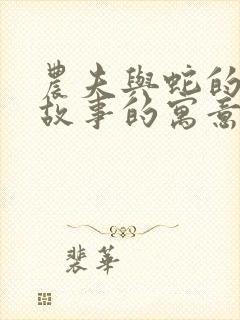 農夫與蛇的
故事的寓意
裴華